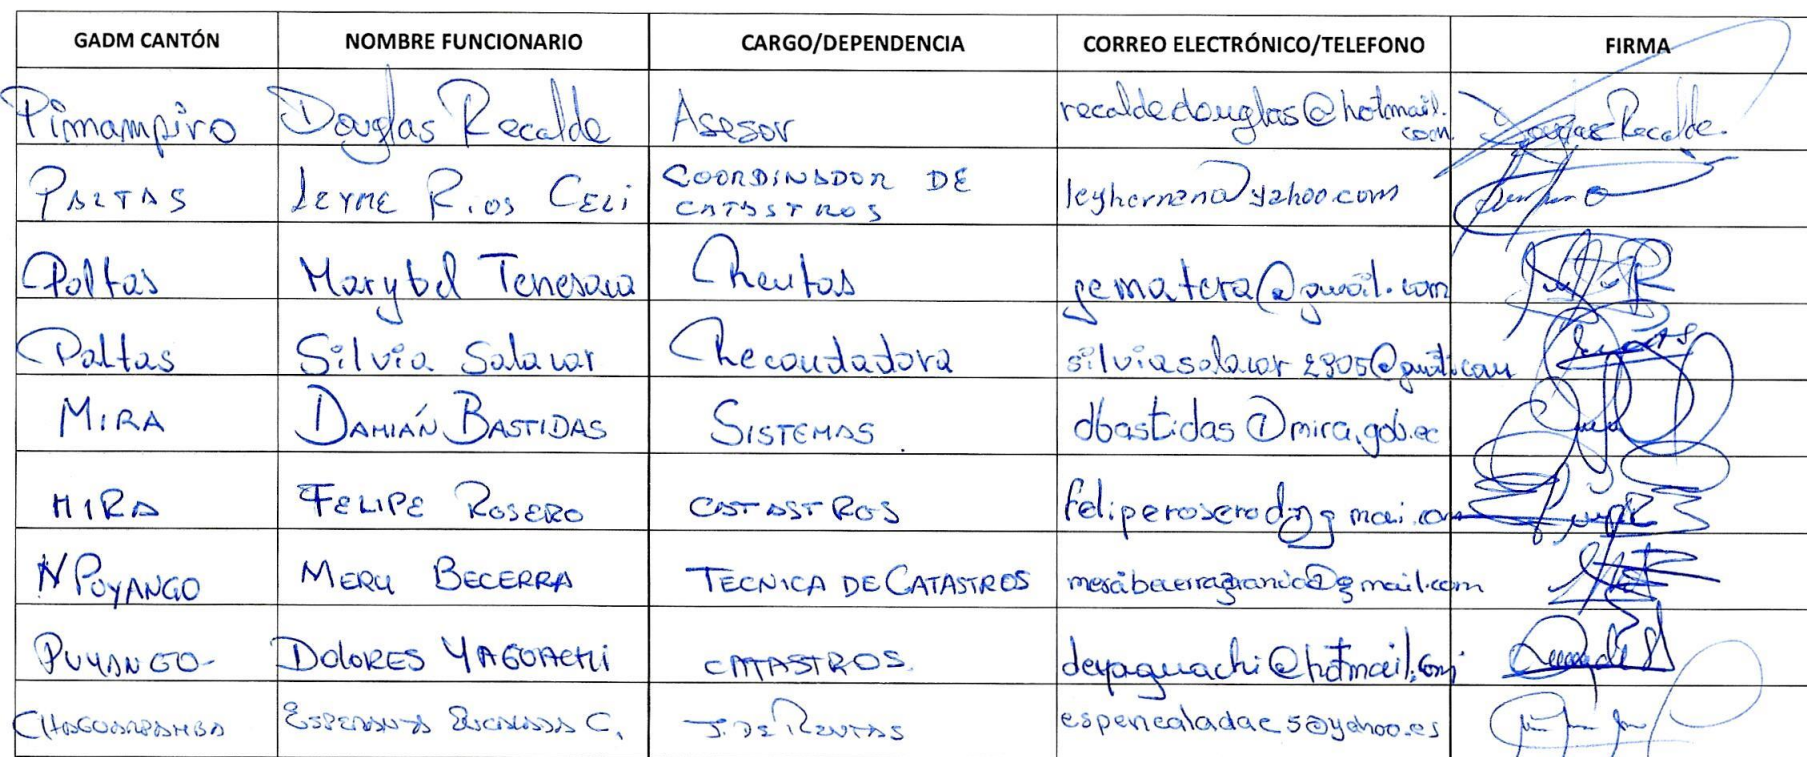 GADM CANTÓN NOMBRE FUNCIONARIO CARGO/DEPENDENCIA CORREO ELECTRÓNICO/TELEFONO FIRMA
Pimampiro Douglas Recalde Asesor recaldedouglas@hotmail.com Douglas Recalde
PALTAS LEYNE Rios CELi COORDINADOR DE CATASTROS leyhernan@yahoo.com
Paltas Marybel Tenesaca Rentas gematera@gmail.com
Paltas Silvia Salazar Recaudadora silviasalazar2305@gmail.com
MIRA DAMIÁN BASTIDAS SISTEMAS dbastidas@mira.gob.ec
MIRA FELIPE ROSERO CATASTROS
PUYANGO BECERRA TECNICA DE CATASTROS
PUYANGO DOLORES YAGUACHI CATASTROS. deyaguachi@hotmail.com
CHAGUARPAMBA ESPERANZA ENCALADA C. J. DE RENTAS espencaladac5@yahoo.es